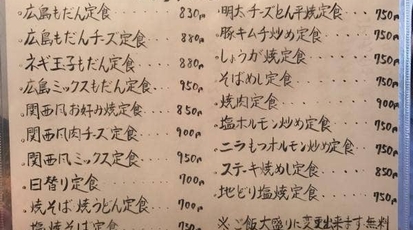 。広島もだん定食・・・・830円
。広島もだんチーズ定食・・・880円
。ネギ玉子もだん定食・・・880円
。広島ミックスもだん定食・・・950円
。関西風お好み焼定食・・・850円
。関西風肉チーズ定食・・・900円
。関西風ミックス定食・・・950円
。日替り定食・・・・700円
。焼そば焼うどん定食・・・700円
塩焼そば定食・・・・750円
。明太チーズとん平焼定食・・750円
。豚キムチ炒め定食・・・750円
。しょうが焼定食・・・・750円
。そばめし定食・・・・750円
。焼肉定食・・・・900円
。塩ホルモン炒め定食・・・750円
。ニラもつオルモン炒め定食・・750円
。ステーキ焼めし定食・・・850円
。地どり塩焼定食・・・750円
※ご飯大盛りに変更出来ます無料